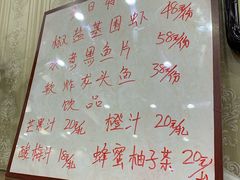 日
椒盐基围虾 48元/份
水煮黑鱼片 58元/份
软炸龙头鱼 38元/份
饮品
芒果汁 20元/扎 橙汁 20元/扎
酸梅汁 18元/扎 蜂蜜柚子茶 20元